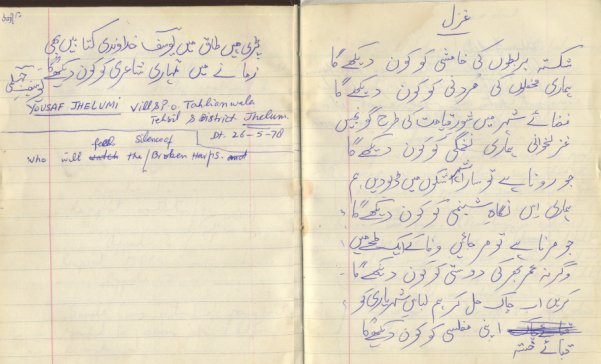 غزل
شکستہ بربطوں کی خامشی کو کون دیکھے گا
ہماری محفلوں کی مُردنی کو کون دیکھے گا
فضائے شہر میں شورِ قیامت کی طرح گونجیں
غزلخوانی ہماری نغمگی کو کون دیکھے گا
جو رونا ہے تو سارا شہر اشکوں میں ڈبو دیں ہم
ہماری اس نگاہِ شبنمی کو کون دیکھے گا
جو مرنا ہے تو مر جائیں وفا کے ایک لمحے میں
وگرنہ عمر بھر کی دوستی کو کون دیکھے گا
کریں اب چاک مل کر ہم لباسِ شہریاری کو
قبائے خستہ اپنی مفلسی کو کون دیکھے گا
پڑی ہیں طاق میں یوسف خداوندی کتابیں بھی
زمانے میں تمہاری شاعری کو کون دیکھے گا
یوسف جہلمی
YOUSAF JHELUMI Vill & P.O. Tahlianwala
Tehsil & District Jhelum.
Dt. 26-5-78
feel Silence of
who will watch the / Broken Harps.